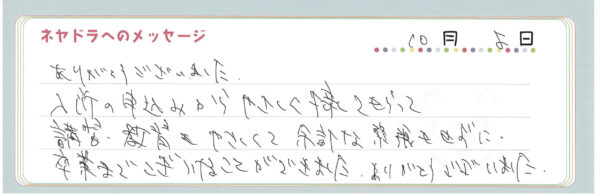 ネヤドラへのメッセージ
10月 日
ありがとうございました。
入所の申込みから やさしく接してもらって
講習・教習も やさしくて 余計な緊張もせずに、
卒業までこぎつけることができました。ありがとうございました。